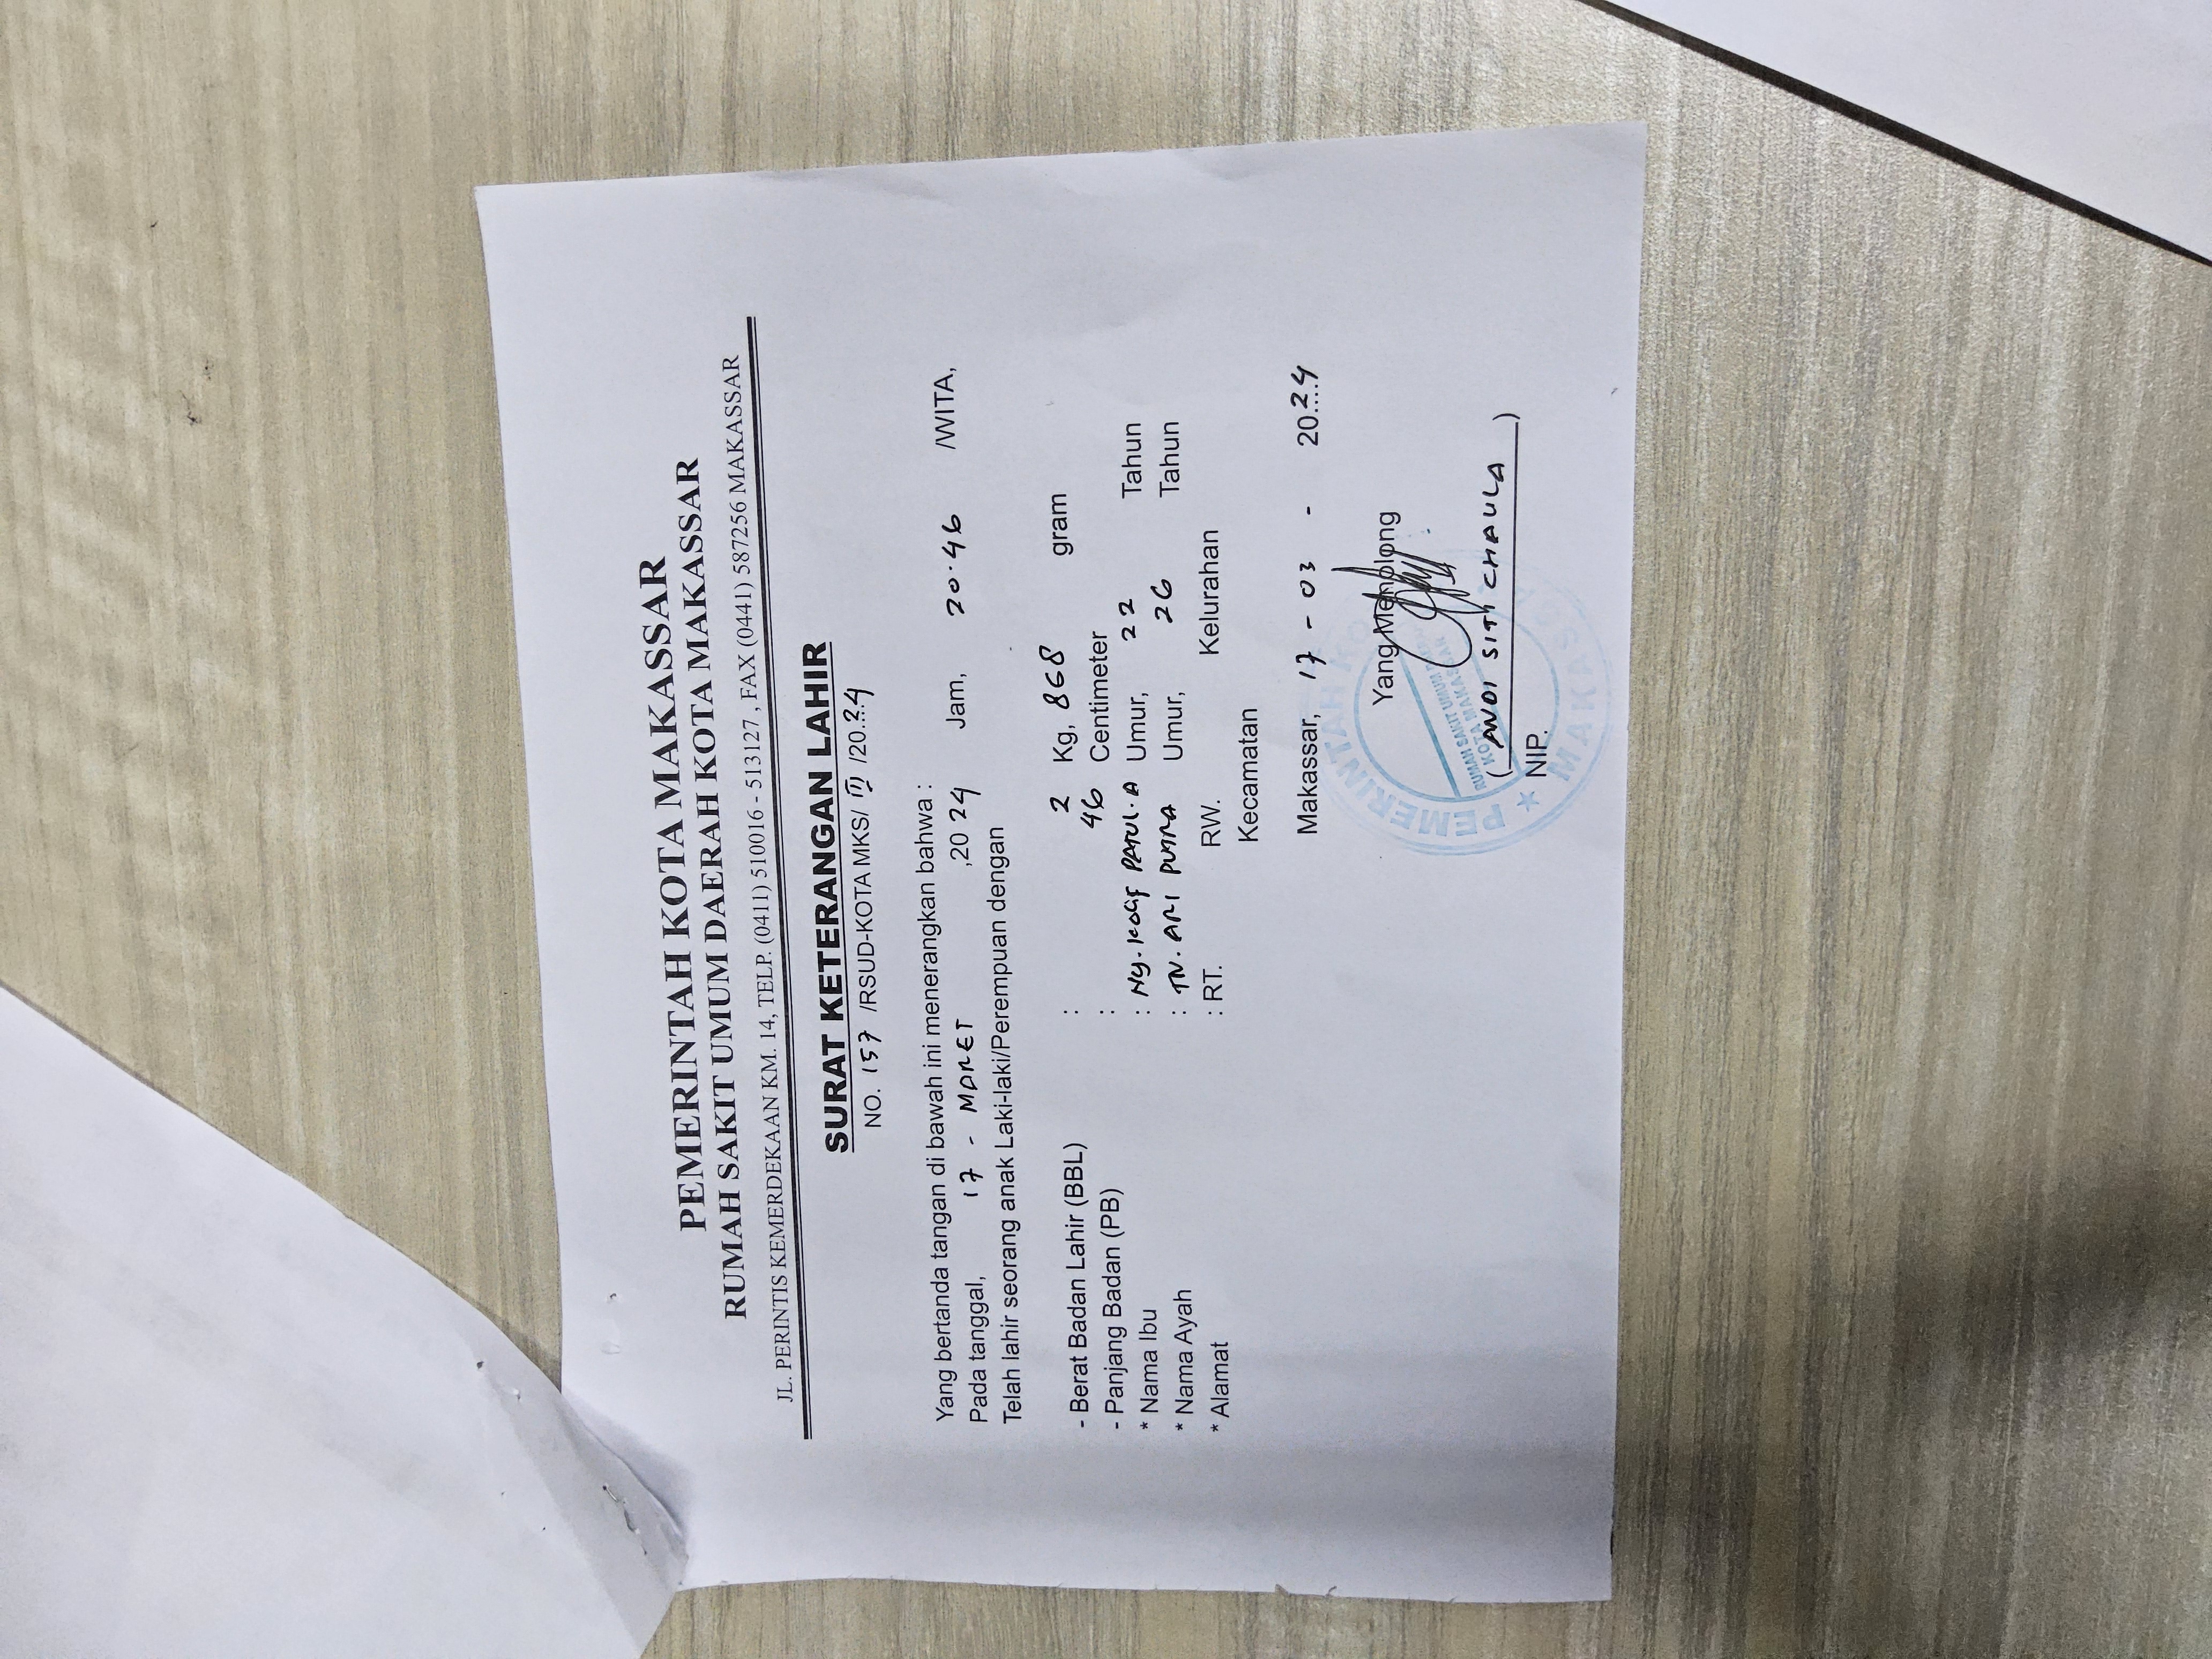 PEMERINTAH KOTA MAKASSAR
RUMAH SAKIT UMUM DAERAH KOTA MAKASSAR
JL. PERINTIS KEMERDEKAAN KM. 14, TELP. (0411) 510016 - 513127 , FAX (0441) 587256 MAKASSAR
SURAT KETERANGAN LAHIR
NO. 157 /RSUD-KOTA MKS/ III /20.24
Yang bertanda tangan di bawah ini menerangkan bahwa :
Pada tanggal, 17 - MARET ,20 24 Jam, 20.46 /WITA,
Telah lahir seorang anak Laki-laki/Perempuan dengan
- Berat Badan Lahir (BBL) : 2 Kg, 868 gram
- Panjang Badan (PB) : 46 Centimeter
* Nama Ibu : Ny. PATUL.A Umur, 22 Tahun
* Nama Ayah : TN. ARI PUTRA Umur, 26 Tahun
* Alamat : RT. RW. Kelurahan
Kecamatan
Makassar, 17 - 03 - 20.24
Yang Menolong
PEMERINTAH KOTA
RUMAH SAKIT UMUM DAERAH
KOTA MAKASSAR
MAKASSAR
( ANDI SITI CHAULA )
NIP.